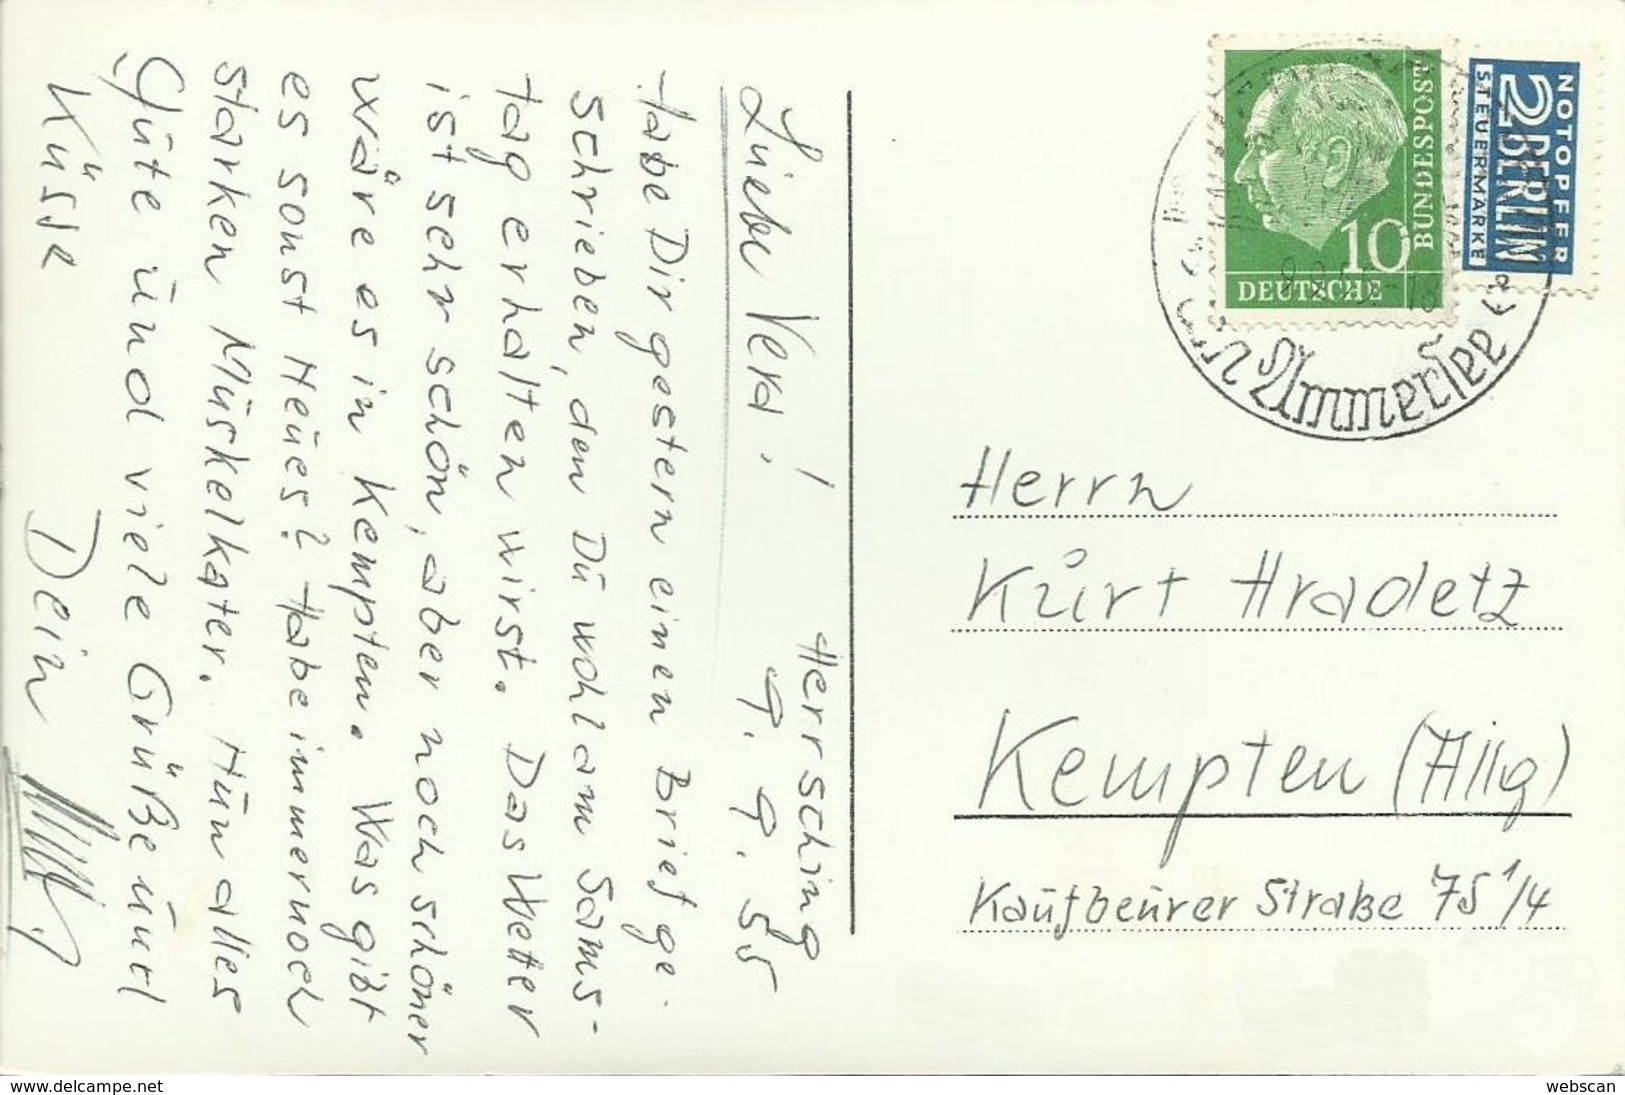 Herrsching
9. 9. 55
Liebe Vera!
Habe Dir gestern einen Brief ge-
schrieben, den Du wohl am Sams-
tag erhalten wirst. Das Wetter
ist sehr schön, aber noch schöner
wäre es in Kempten. Was gibt
es sonst Neues? Habe immer noch
starken Muskelkater. Nun alles
Gute und viele Grüße und
Küsse
Dein
DEUTSCHE
BUNDESPOST
10
NOTOPFER
2 BERLIN
STEUERMARKE
Ammersee
Herrn
Kurt Hradetz
Kempten (Allg)
Kaufbeurer Straße 75 1/4
www.delcampe.net
webscan